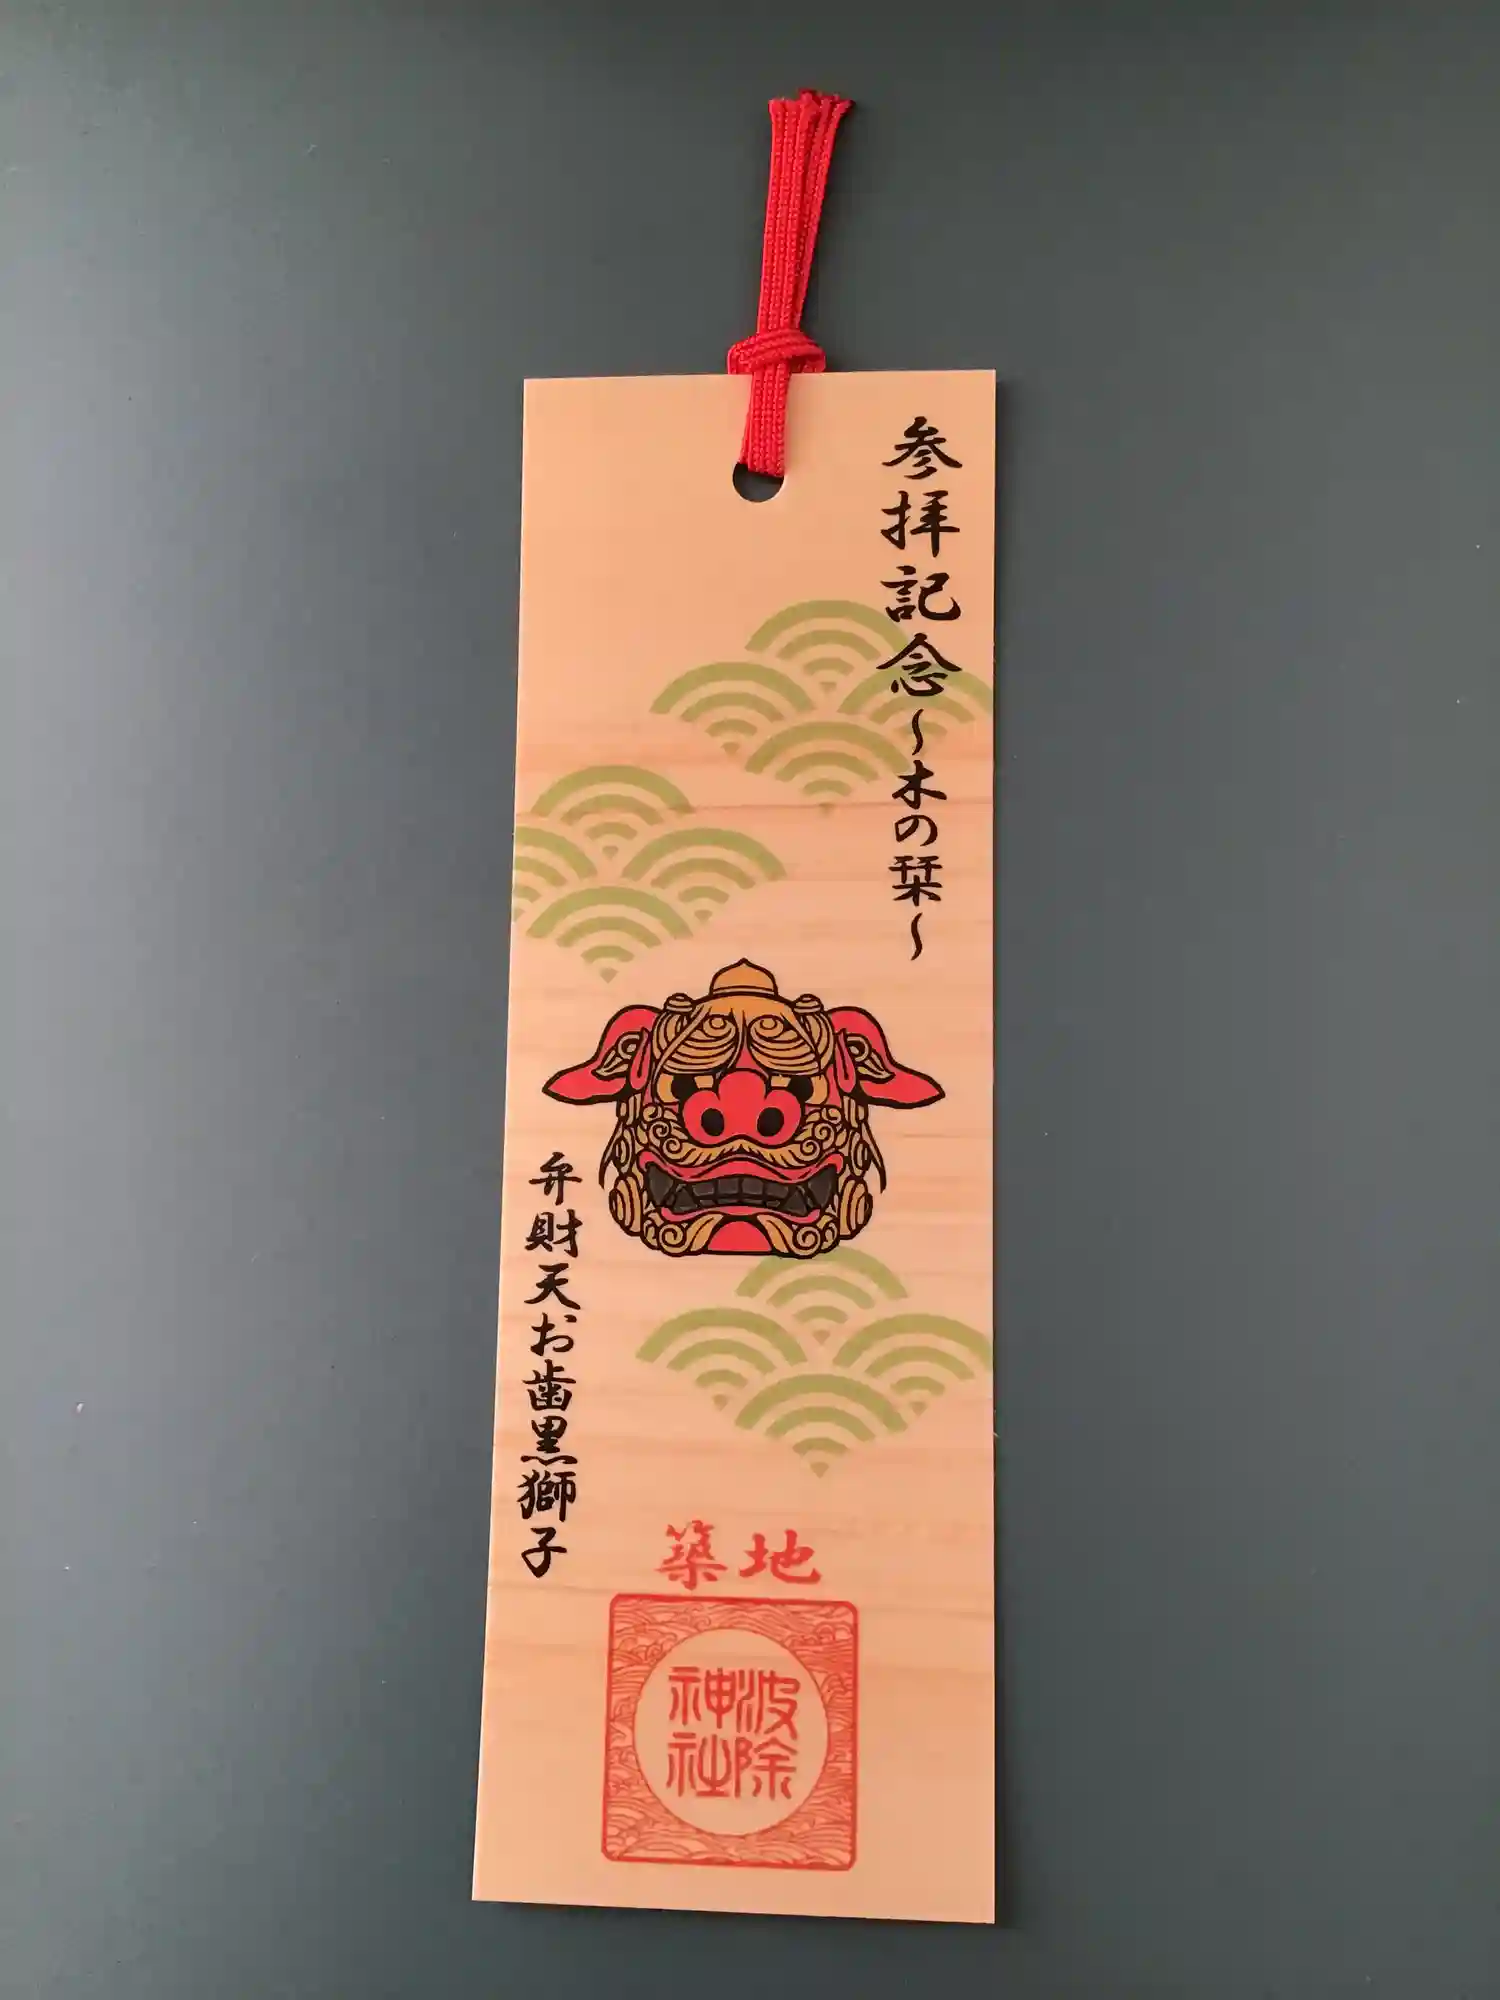 参拝記念〜木の栞〜
弁財天お歯黒獅子
築地
波除
神社